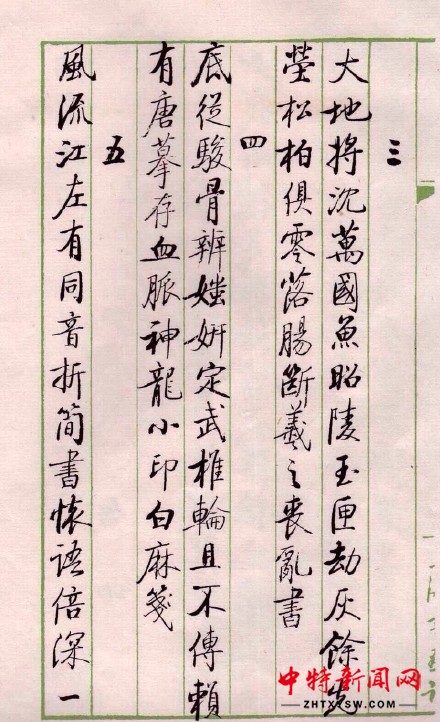 三
大地將沈萬國魚昭陵玉匣劫灰餘先
塋松柏俱零落腸斷羲之喪亂書
四
底從駿骨辨媸妍定武椎輪且不傳賴
有唐摹存血脈神龍小印白麻箋
五
風流江左有同音折簡書懷語倍深一
中特新闻网